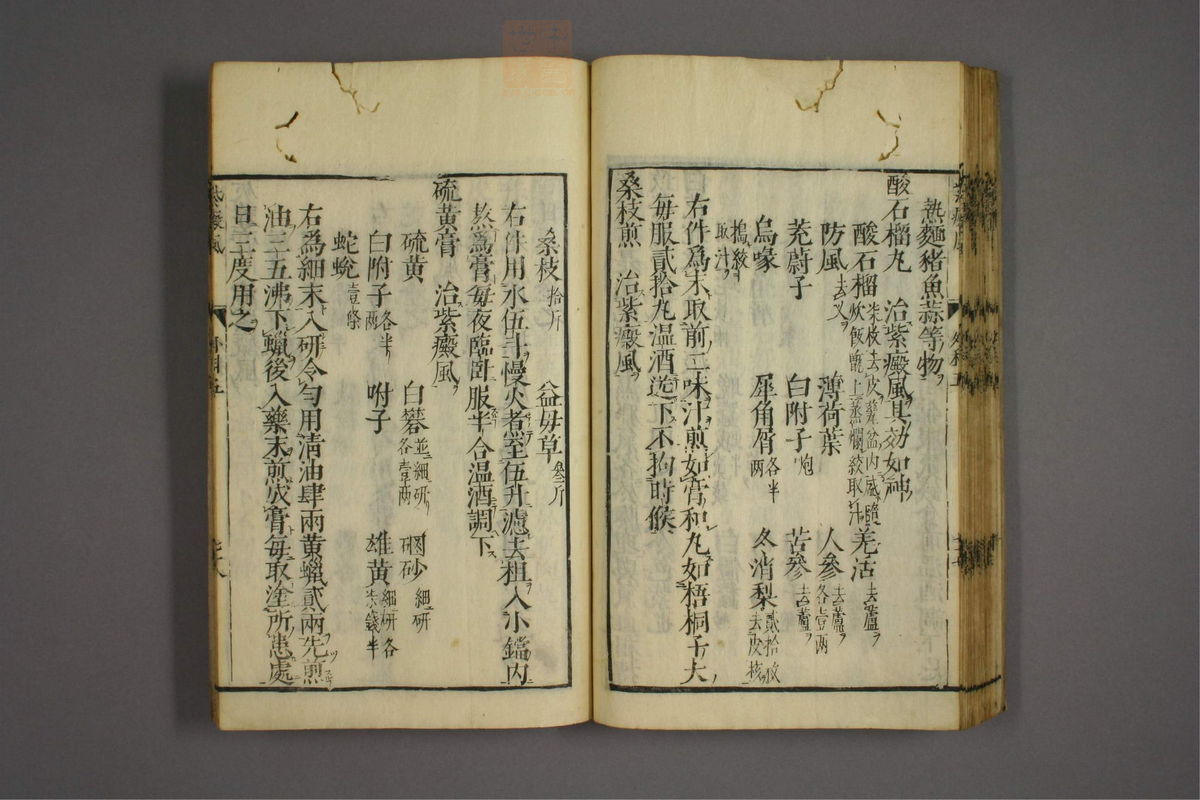 熱麵豬魚蒜等物
酸石榴丸 治紫癜風其効如神
酸石榴柒枚去皮臺盆內盛隨炊飯甑上蒸爛絞取汁 羌活去蘆
防風去叉 薄荷葉 人參去蘆各壹兩
茺蔚子 白附子炮 苦參去蘆
烏喙 犀角屑各半兩 冬消梨貳拾枚去皮核
搗絞取汁
右件爲末取前二味汁煎如膏和丸如梧桐子大
每服貳拾丸温酒送下不拘時候
桑枝煎 治紫癜風
桑枝拾斤 益母草叄斤
右件用水伍斗慢火煮至伍升濾去粗入小鐺內
熬爲膏每夜臨卧服半合温酒調下
硫黃膏 治紫癜風
硫黃 白礬並細研各壹兩 硇砂細研
白附子各半兩 附子 雄黃細研各柒錢半
蛇蛻壹條
右爲細末入研令勻用清油肆兩黃蠟貳兩先煎
油三五沸下蠟後入藥末煎成膏每取塗所患處
日三度用之